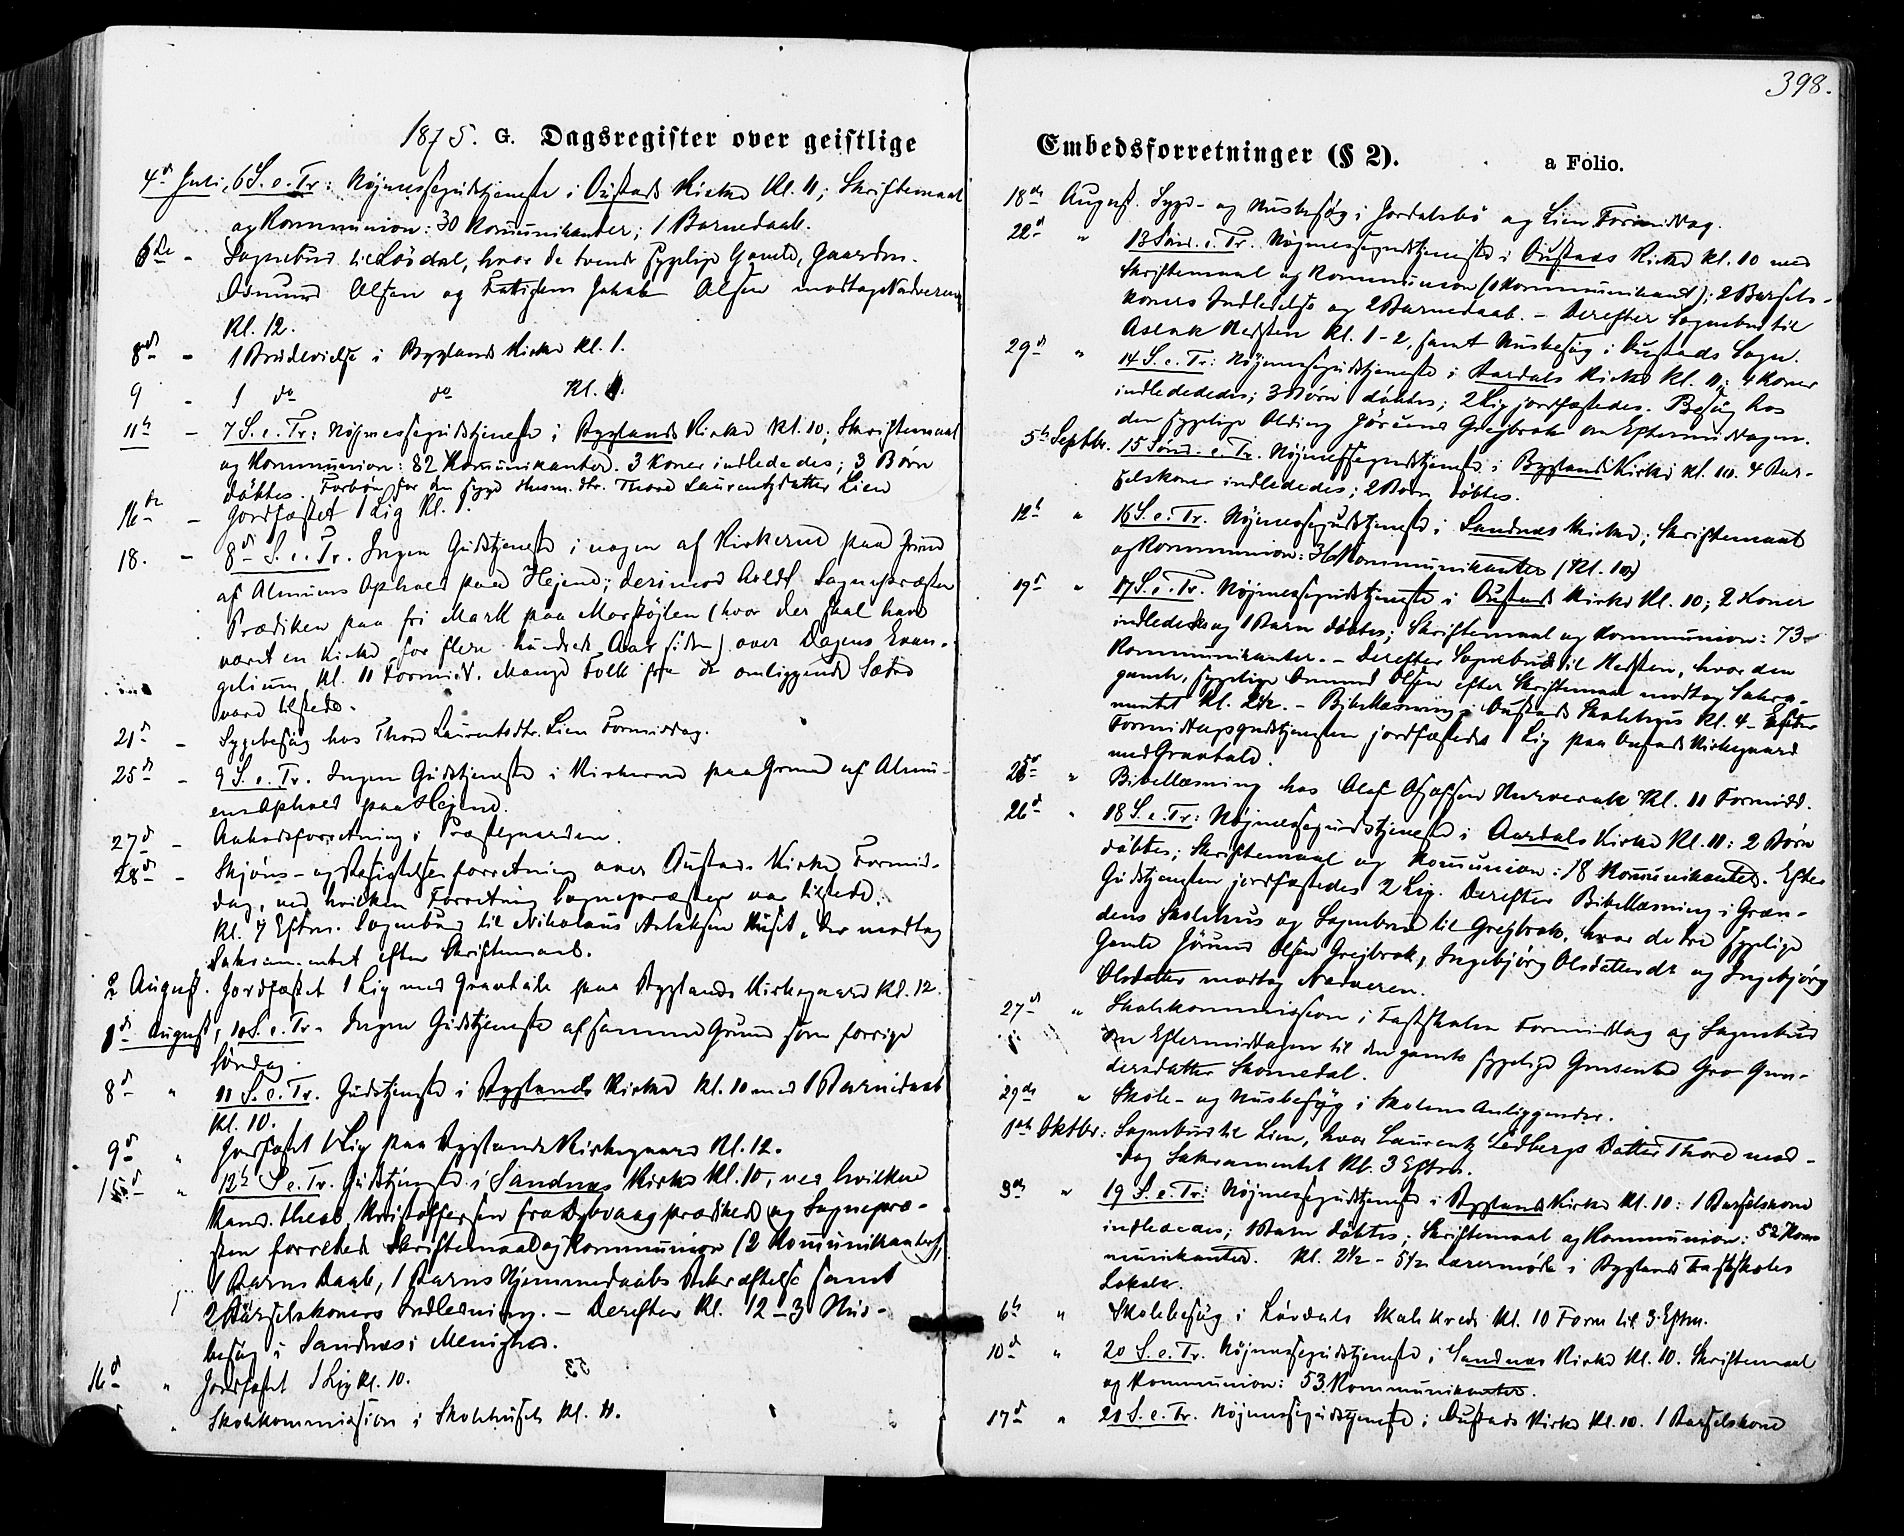 398.
1875. G. Dagsregister over geistlige
4de Juli, 6 S. e. Tr: Højmessegudstjeneste i Austads Kirke Kl. 11; Skriftemaal
og Kommunion: 30 Kommunikanter; 1 Barnedaab.
6te - Sognebud til Løvdal, hvor de tvende sygelige Gamle, Gaardm.
Osmund Olsen og Jakob Olsen modtog Nadveren
Kl. 12.
8de - 1 Brudevielse i Byglands Kirke Kl. 1.
9 - 1 do do Kl. 1.
11te - 7 S. e. Tr: Højmessegudstjeneste i Byglands Kirke Kl. 10; Skriftemaal
og Kommunion: 82 Kommunikanter. 3 Koner indlededes; 3 Børn
døbtes. Forbøn for den syge Husm. dtr. Thore Laurentsdatter Lien
16de - Jordfæstet 1 Lig Kl. 1.
18. - 8de S. e. Tr. Ingen Gudstjeneste i nogen af Kirkerne paa Grund
af Almuens Ophold paa Hejene; derimod holdt Sognepræsten
Prædiken paa fri Mark paa (hvor der skal have
været en Kirke for flere hundrede Aar siden) over Dagens Evan-
gelium Kl. 11 Formid. Mange Folk fra de omliggende Sætre
vare tilstede.
21de - Sygebesøg hos Thore Laurentsdtr. Lien Formiddag.
25de - 9 S. e. Tr. Ingen Gudstjeneste i Kirkerne paa Grund af Almu-
ens Ophold paa Hejene.
27de - Aabodsforretning i Præstegaarden.
28de - Skjøns- og Besigtelsesforretning over Austads Kirke Formid-
dag, ved hvilken Forretning Sognepræsten var tilstede.
Kl. 7 Eftm. Sognebud til Nikolaus Aslaksen, der modtog
Sakramentet efter Skriftemaal.
2 August. Jordfæstet 1 Lig med Gravtale paa Byglands Kirkegaard Kl. 12.
1de August, 10 S. e. Tr. Ingen Gudstjeneste af samme Grund som forrige
Søndag.
8de " 11 S. e. Tr. Gudstjeneste i Byglands Kirke Kl. 10 med 1 Barnedaab
Kl. 10.
9de " Jordfæstet 1 Lig paa Byglands Kirkegaard Kl. 12.
15de " 12te S. e. Tr. Gudstjeneste i Sandnæs Kirke Kl. 10, ved hvilken
Kand. theol. Kristoffersen fra Dybvaag prædiked og Sognepræ-
sten forretted Skriftemaal og Kommunion (2 Kommunikanter),
1 Barns Daab, 1 Barns Hjemmedaabs Bekræftelse samt
2 Barselskoners Indledning. - Derefter Kl. 12-3 Hus-
besøg i Sandnæs Menighed.
16de " Jordfæstet 1 Lig Kl. 10.
53
" Skolekommission i Skolehuset Kl. 11.
Embedsforretninger (§ 2).
a Folio.
18de August. Syge- og Husbesøg i Jordalsbø og Lien Formiddag.
22de " 13 Sønd. e. Tr. Højmessegudstjeneste i Austads Kirke Kl. 10 med
Skriftemaal og Kommunion (1 Kommunikant); 2 Barsels-
koners Indledelse og 2 Barnedaab. - Derefter Sognebud til
Aslak Kl. 1-2, samt Husbesøg i Austads Sogn.
29de " 14 S. e. Tr: Højmessegudstjeneste i Aardals Kirke Kl. 11; 4 Koner
indlededes; 3 Børn døbtes; 2 Lig jordfæstedes. Besøg hos
den sygelige Olding Jørund Grejbrok om Eftermiddagen.
5te Septbr. 15 Sønd. e. Tr. Højmessegudstjeneste i Byglands Kirke Kl. 10. 4 Bar-
selskoner indlededes; 2 Børn døbtes.
12te " 16 S. e. Tr. Højmessegudstjeneste i Sandnæs Kirke; Skriftemaal
og Kommunion: Kommunikanter (Kl. 10)
19de " 17 S. e. Tr. Højmessegudstjeneste i Austads Kirke Kl. 10; 2 Koner
indlededes og 1 Barn døbtes; Skriftemaal og Kommunion: 73
Kommunikanter. - Derefter Sognebud til, hvor den
gamle, sygelige Omund Olsen efter Skriftemaal modtog Sakra-
mentet Kl. 2½. - Bibellæsning i Austads Skolehus Kl. 4 - Efter
Formiddagsgudstjenesten jordfæstedes 1 Lig paa Austads Kirkegaard
med Gravtale.
25de " Bibellæsning hos Olaf Kl. 11 Formidd.
26de " 18 S. e. Tr: Højmessegudstjeneste i Aardals Kirke Kl. 11: 2 Børn
døbtes; Skriftemaal og Kommunion: 18 Kommunikanter. Efter
Gudstjenesten jordfæstedes 2 Lig. Derefter Bibellæsning i Græn-
dens Skolehus og Sognebud til Grejbrok, hvor de tre sygelige
Gamle Jørund Olsen Grejbrok, Ingebjørg Olsdatter og Ingebjørg
Olsdatter modtog Nadveren.
27de " Skolekommission i Fastskolen Formiddag og Sognebud
om Eftermiddagen til den gamle sygelige Gro Gun-
dersdatter Skomedal.
29de " Skole- og Husbesøg i Skolens Anliggender.
1ste Oktbr: Sognebud til Lien, hvor Laurents Datter Thore mod-
tog Sakramentet Kl. 3 Eftm.
3de " 19 S. e. Tr: Højmessegudstjeneste i Byglands Kirke Kl. 10: 1 Barselskone
indlededes; 1 Barn døbtes; Skriftemaal og Kommunion: 52 Kom-
munikanter. Kl. 2½ - 5½ Lærermøde i Byglands Fastskoles
Lokale.
6te " Skolebesøg i Løvdals Skolekreds Kl. 10 Form til 3 Eftm.
10de " 20 S. e. Tr. Højmessegudstjeneste i Sandnæs Kirke Kl. 10. Skriftemaal
og Kommunion: 53 Kommunikanter.
17de " 21 S. e. Tr. Højmessegudstjeneste i Austads Kirke Kl. 10. 1 Barselskone